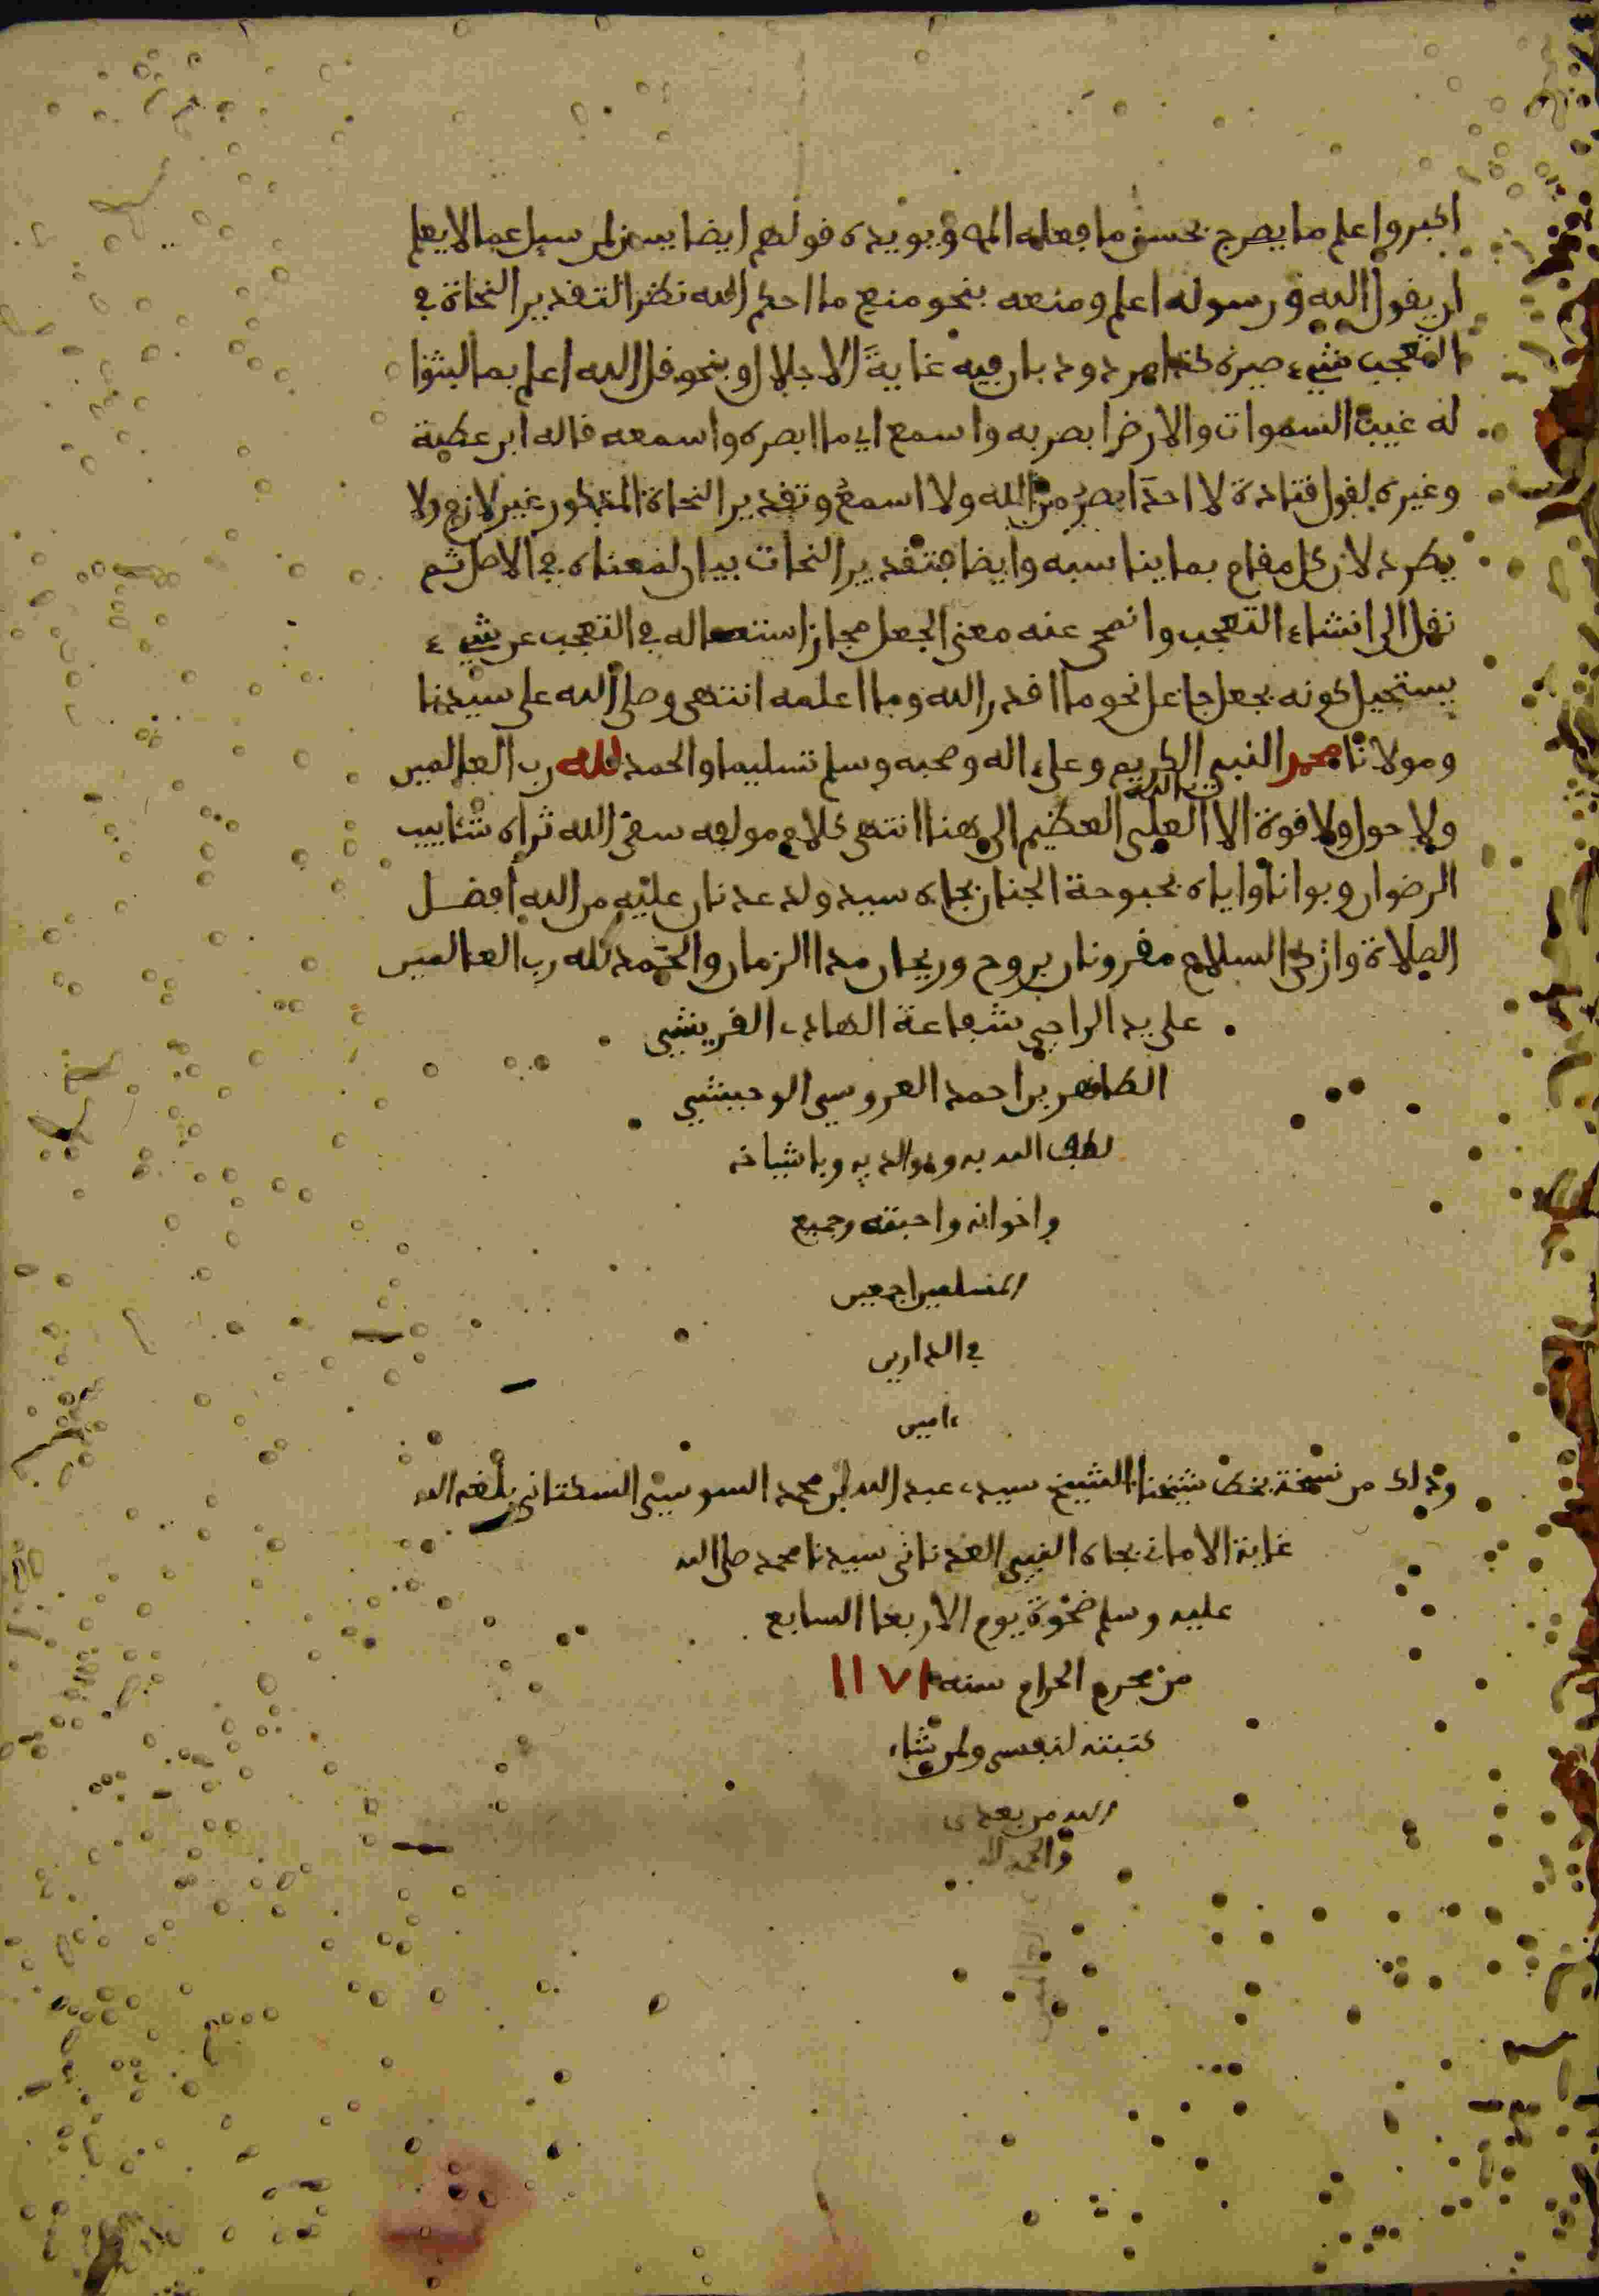 اكبر واعلم ما يصرح بحسن ما فعله المه ويويده قولهم ايضا يسن لمن سيل عما لا يعلم
ان يقول الله ورسوله اعلم ومنعه بنحو منع ما احكم الله نظرا لتقدير النحاة في
التعجب شيء صيره كذا مردود بان فيه غاية الاجلال وبنحو قل الله اعلم بما لبثوا
له غيب السموات والارض ابصر به واسمع اي ما ابصره واسمعه قاله ابن عطية
وغيره لقول قتادة لا احد ابصر من الله ولا اسمع وتقدير النحاة المذكور غير لازم ولا
يطرد لان كل مقام بما يناسبه وايضا فتقدير النحات بيان لمعناه في الاصل ثم
نقل الى انشاء التعجب وانمحى عنه معنى الجعل فجاز استعماله في التعجب عن شيء
يستحيل كونه بجعل جاعل نحو ما اقدر الله وما اعلمه انتهى وصلى الله على سيدنا
ومولانا محمد النبي الكريم وعلى اله وصحبه وسلم تسليما والحمد لله رب العالمين
ولا حول ولا قوة الا بالله العلي العظيم الى هنا انتهى كلام مولفه سقى الله ثراه شئابيب
الرضوان وبوانا واياه بحبوحة الجنان بجاه سيد ولد عدنان عليه من الله افضل
الصلاة وازكى السلام مقرونان بروح وريحان مدا الزمان والحمد لله رب العالمين
على يد الراجي شفاعة الهادي القريشي
الطاهر بن احمد العروسي الوحبيشي
لطف الله به وبوالديه وباشياخه
واخوانه واحبته وجميع
المسلمين اجمعين
في الدارين
ءامين
وذلك من نسخة بخط شيخنا الشيخ سيدي عبد الله ابن محمد السوسي السكتاني بلغه الله
غاية الاماني بجاه النبي العدناني سيدنا محمد صلى الله
عليه وسلم ضحوة يوم الاربعا السابع
من محرم الحرام سنه ١١٧١
كتبته لنفسي ولمن شاء
الله من بعدي
والحمد لله
رب العالمين